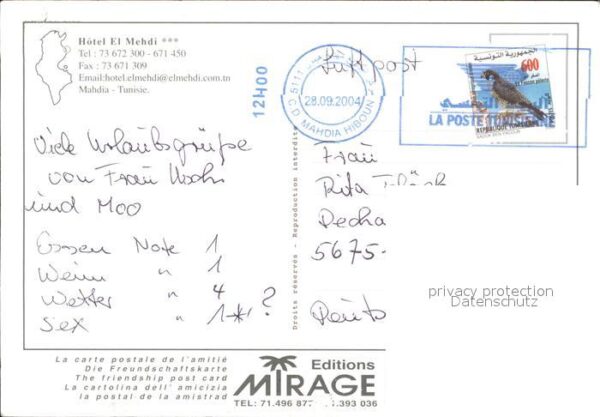 Hôtel El Mehdi ***
Tel : 73 672 300 - 671 450
Fax : 73 671 309
Email:hotel.elmehdi@elmehdi.com.tn
Mahdia - Tunisie.
Luftpost
12H00
5111
28.09.2004
C.D MAHDIA HIBOUN
الجمهورية التونسية
600
REPUBLIQUE TUNISIENNE
البريد التونسي
LA POSTE TUNISIENNE
Viele Urlaubsgrüße
von Frau
und Moo
Essen Note 1
Wein " 1
Wetter " 4
Sex " 1* ?
Droits réservés - Reproduction interdite
Frau
Rita
Decha
5675-
privacy protection
Datenschutz
La carte postale de l'amitié
Die Freundschaftskarte
The friendship post card
La cartolina dell' amicizia
la postal de la amistrad
Editions
MIRAGE
TEL: 71.496 877 .393 036